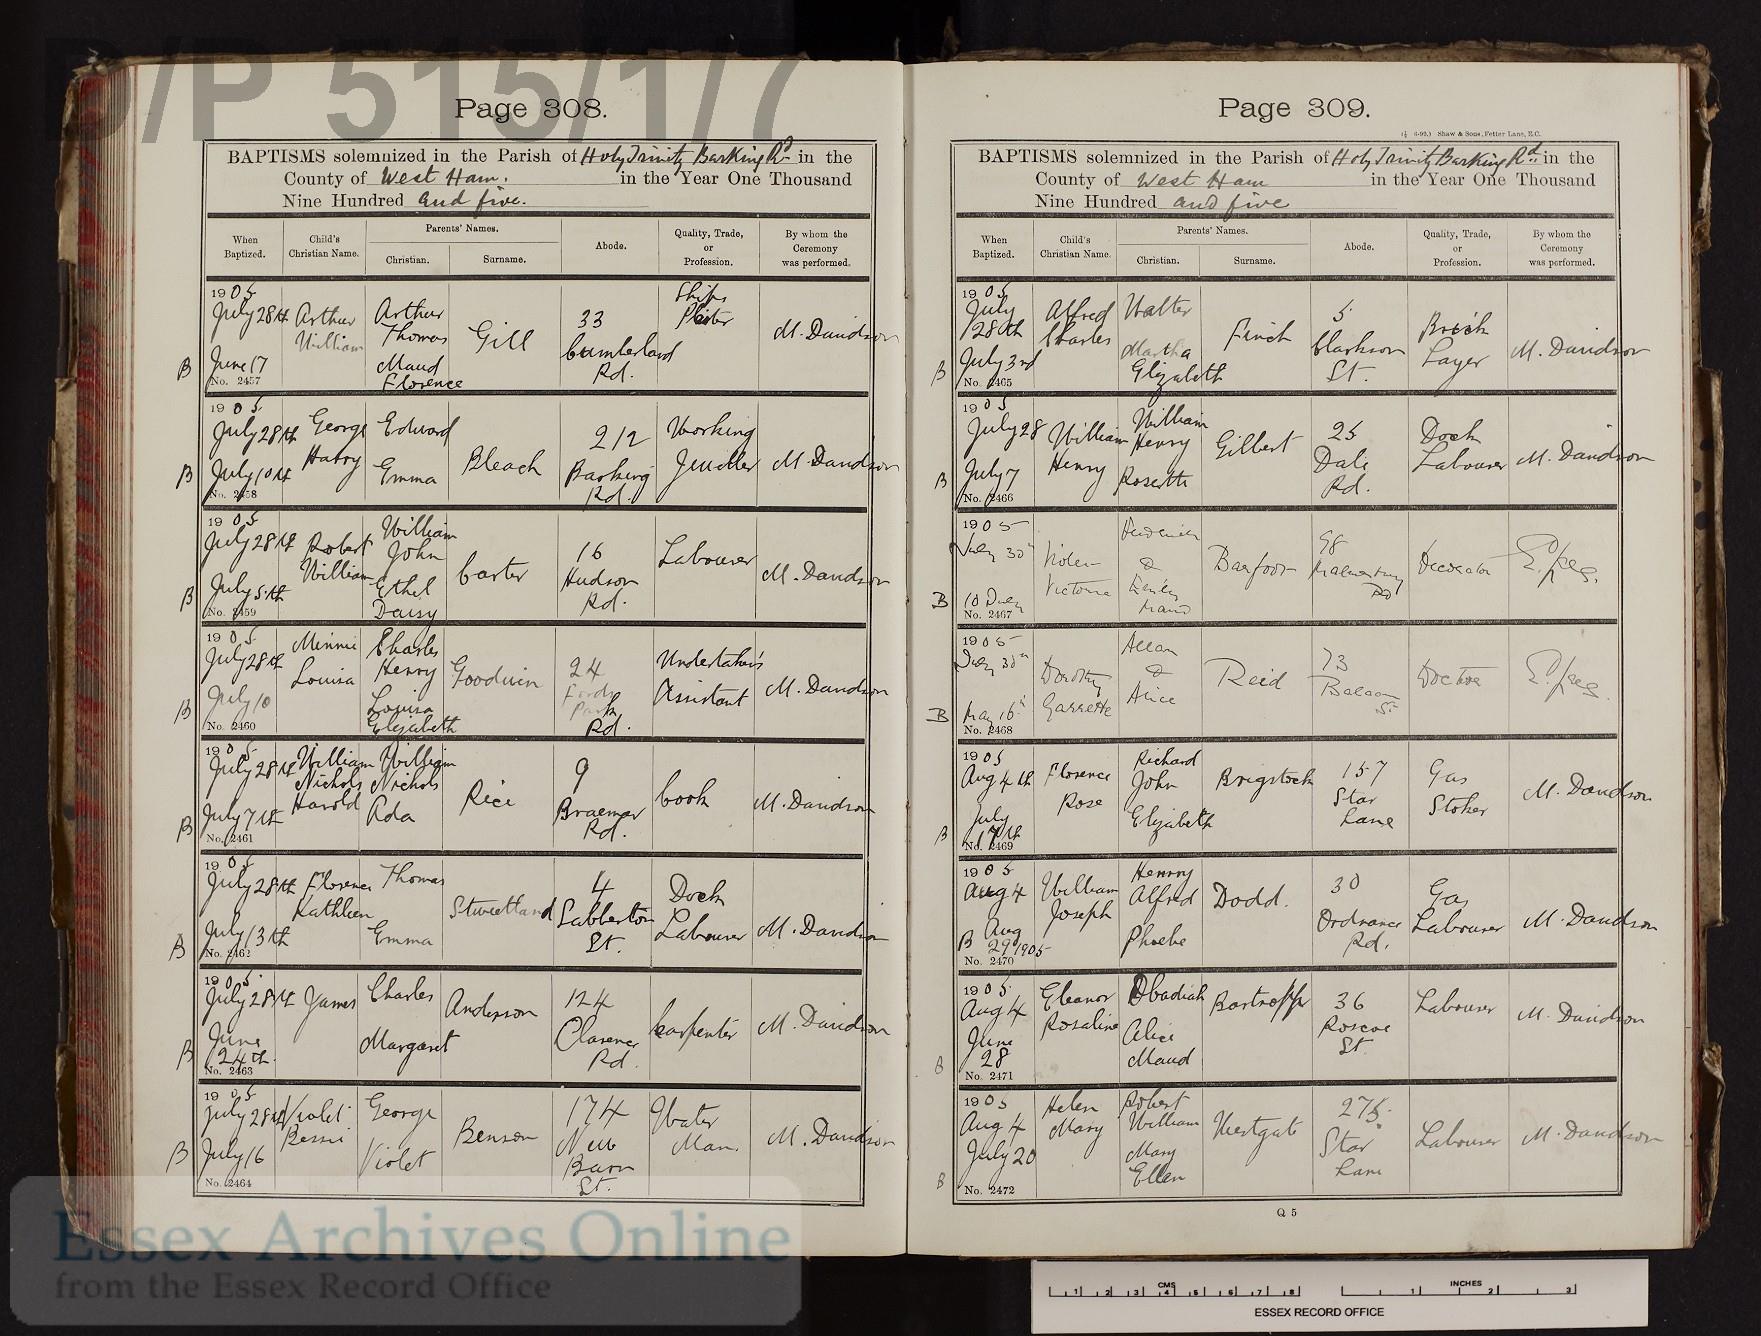 D/P 515/1/7
Page 308.
BAPTISMS solemnized in the Parish of Holy Trinity Barking Rd in the
County of West Ham. in the Year One Thousand
Nine Hundred and five.
When Baptized. Child's Christian Name. Parents' Names. Christian. Surname. Abode. Quality, Trade, or Profession. By whom the Ceremony was performed.
1905 July 28th B June 17 No. 2457 Arthur William Arthur Thomas Maud Florence Gill 33 Cumberland Rd. Ships M. Davidson
1905 July 28th B July 10th No. 2458 George Harry Edward Emma Bleach 212 Barking Rd. Working Jeweller M. Davidson
1905 July 28th B July 5th No. 2459 Robert William William John Ethel Daisy Carter 16 Hudson Rd. Labourer M. Davidson
1905 July 28th B July 10 No. 2460 Minnie Louisa Charles Henry Louisa Elizabeth Goodwin 24 Fords Park Rd. Undertaker's Assistant M. Davidson
1905 July 28th B July 7th No. 2461 William Nichols Harold William Nichols Ada Rice 9 Braemar Rd. Cook M. Davidson
1905 July 28th B July 13th No. 2462 Florence Kathleen Thomas Emma 4 Sabberton St. Dock Labourer M. Davidson
1905 July 28th B June 24th. No. 2463 James Charles Margaret Anderson 124 Clarence Rd. Carpenter M. Davidson
1905 July 28th B July 16 No. 2464 Violet Bessie George Violet Benson 174 New Barn St. Water Man. M. Davidson
Page 309.
(½ 6-99.) Shaw & Sons, Fetter Lane, E.C.
BAPTISMS solemnized in the Parish of Holy Trinity Barking Rd. in the
County of West Ham in the Year One Thousand
Nine Hundred and five
When Baptized. Child's Christian Name. Parents' Names. Christian. Surname. Abode. Quality, Trade, or Profession. By whom the Ceremony was performed.
1905 July 28th B July 3rd No. 2465 Alfred Charles Walter Martha Elizabeth Finch 5 Clarkson St. Brick Layer M. Davidson
1905 July 28 B July 7 No. 2466 William Henry William Henry Rosetta Gilbert 25 Dale Rd. Dock Labourer M. Davidson
1905 July 30th B 10 July No. 2467 Violet Victoria Frederick & Emily Maud Barfoot 98 Rd Decorator
1905 July 30th B May 16th No. 2468 Dorothy Garrette Allan & Alice Reid 73 Balaam St Doctor
1905 Aug 4th B July 17th No. 2469 Florence Rose Richard John Elizabeth Brigstock 157 Star Lane Gas Stoker M. Davidson
1905 Aug 4 B Aug 29 1905 No. 2470 William Joseph Henry Alfred Phoebe Dodd. 30 Ordnance Rd. Gas Labourer M. Davidson
1905 Aug 4 B June 28 No. 2471 Eleanor Rosaline Obadiah Alice Maud Bartropp 36 Roscoe St. Labourer M. Davidson
1905 Aug 4 B July 20 No. 2472 Helen Mary Robert William Mary Ellen Westgate 275 Star Lane Labourer M. Davidson
Q 5
Essex Archives Online
from the Essex Record Office
CMS
1 2 3 4 5 6 7 8
INCHES
1 2 3
ESSEX RECORD OFFICE